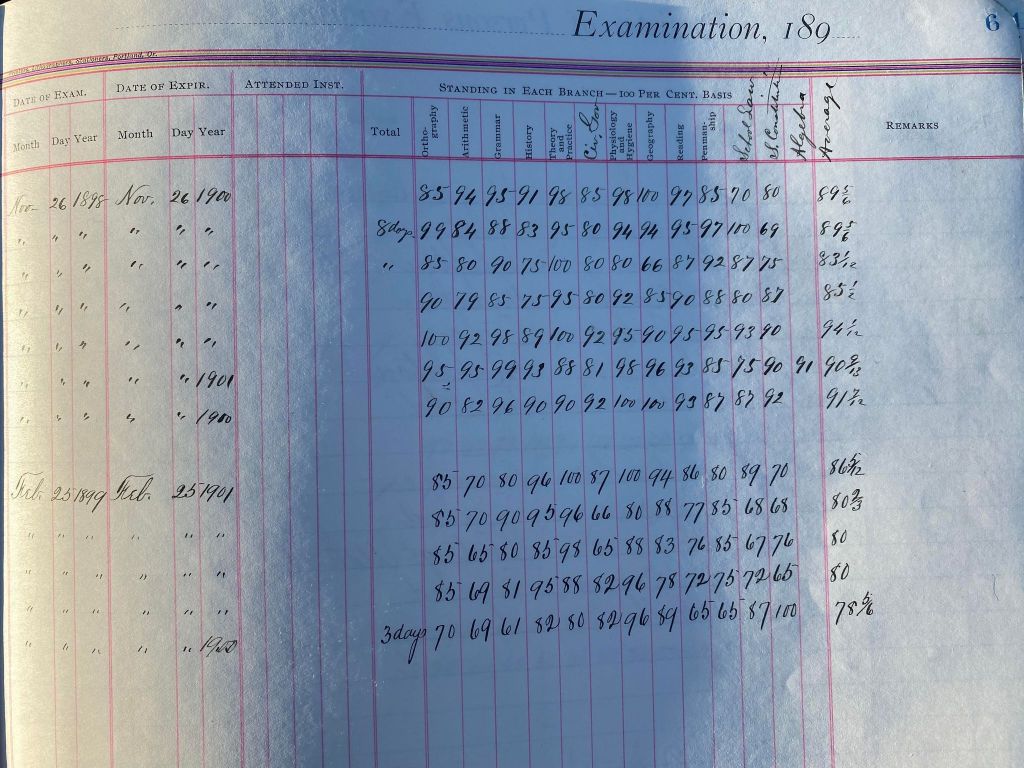 Examination, 189
6
Stationers, Portland, Or.
DATE OF EXAM. DATE OF EXPIR. ATTENDED INST. STANDING IN EACH BRANCH—100 PER CENT. BASIS
Month Day Year Month Day Year Total Ortho-graphy Arithmetic Grammar History Theory and Practice Civ. Gov Physiology and Hygiene Geography Reading Penman-ship School Law Constitution Algebra Average REMARKS
Nov. 26 1898 Nov. 26 1900 85 94 95 91 98 85 98 100 97 85 70 80 89 5/6
" " " " " " 8 days 99 84 88 83 95 80 94 94 95 97 100 69 89 5/6
" " " " " " " 85 80 90 75 100 80 80 66 87 92 87 75 83 1/12
" " " " " " 90 79 85 75 95 80 92 85 90 88 80 87 85 1/2
" " " " " " 100 92 98 89 100 92 95 90 95 95 93 90 94 1/12
" " " " " 1901 95 95 99 93 88 81 98 96 93 85 75 90 91 90 9/13
" " " " " 1900 90 82 96 90 90 92 100 100 93 87 87 92 91 7/12
Feb. 25 1899 Feb. 25 1901 85 70 80 96 100 87 100 94 86 80 89 70 86 5/12
" " " " " " 85 70 90 95 96 66 80 88 77 85 68 68 80 2/3
" " " " " " 85 65 80 85 98 65 88 83 76 85 67 76 80
" " " " " " 85 69 81 95 88 82 96 78 72 75 72 65 80
" " " " " 1900 3 days 70 69 61 82 80 82 96 89 65 65 87 100 78 5/6